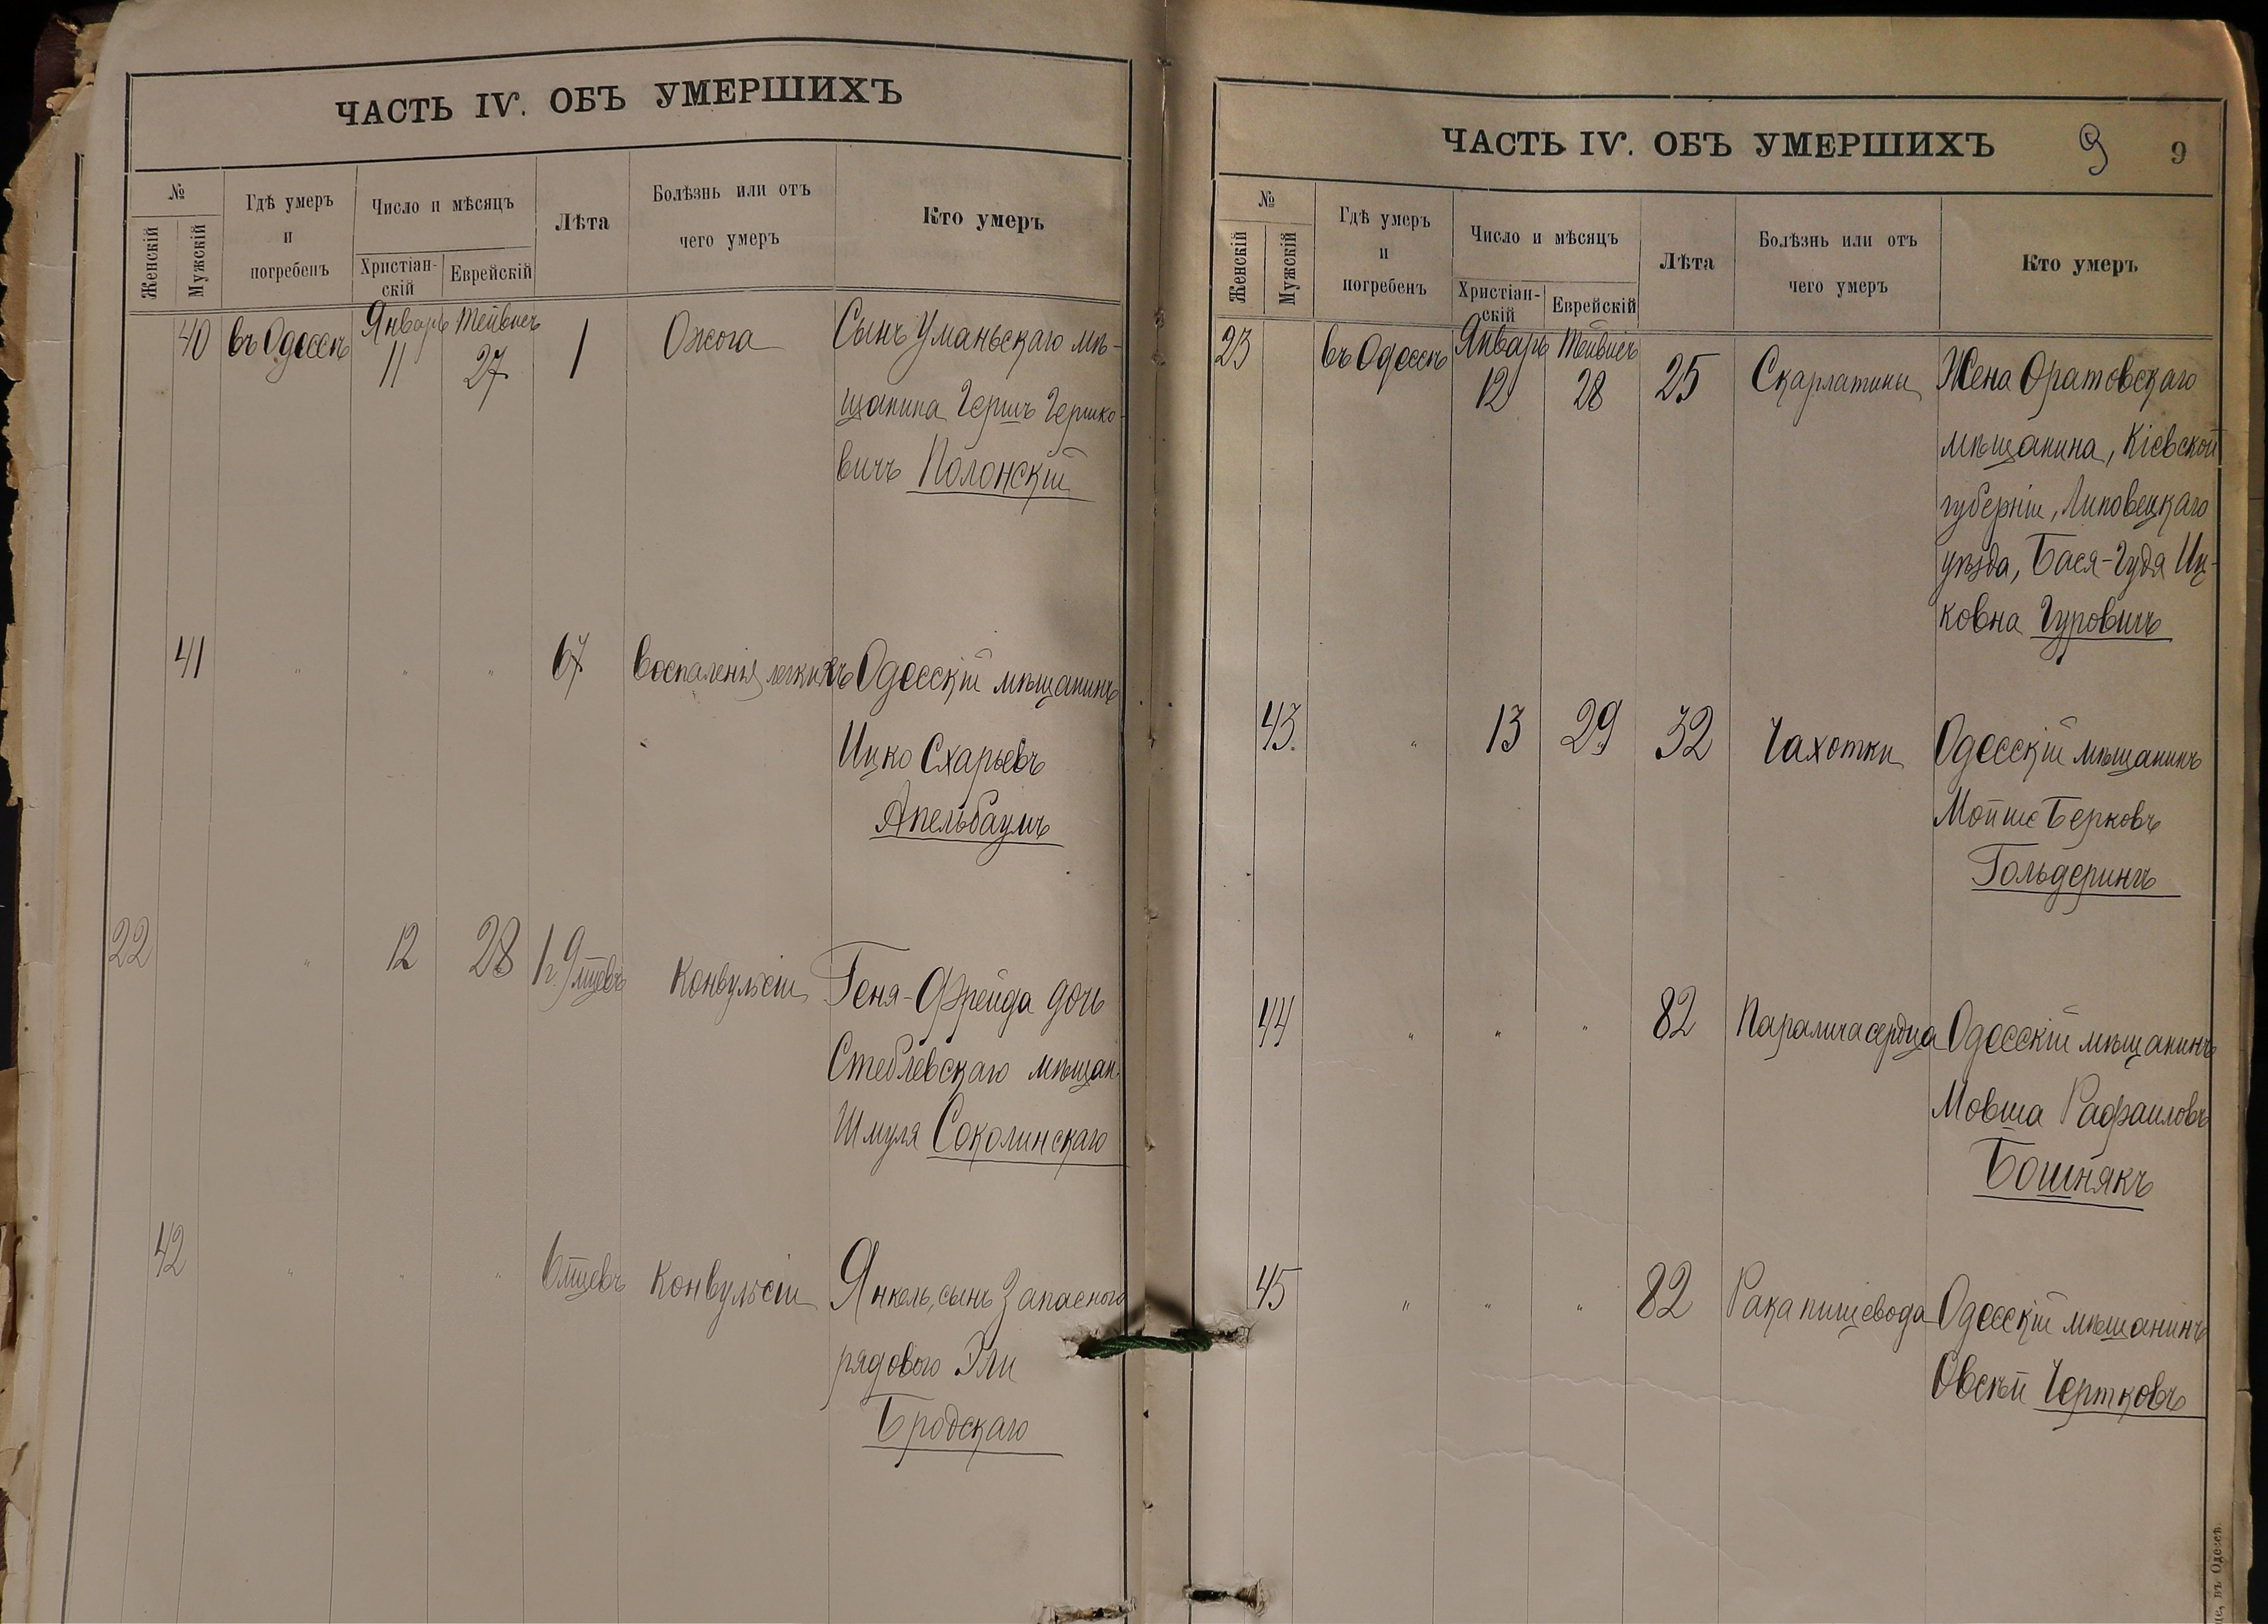 ЧАСТЬ IV. ОБЪ УМЕРШИХЪ
№
Женскій
Мужскій
Гдѣ умеръ
и
погребенъ
Число и мѣсяцъ
Христіан-
скій
Еврейскій
Лѣта
Болѣзнь или отъ
чего умеръ
Кто умеръ
40 въ Одессѣ Январь 11 Тейвись 27 1 Ожога Сынъ Уманьскаго мѣ-
щанина Гершъ Гершко-
вичъ Полонскій
41 " " " 67 Воспаленія легкихъ Одесскій мѣщанинъ
Ицко Схарьевъ
Апельбаумъ
22 " 12 28 1 г. 9 мцевъ Конвульсіи Геня-Фрейда дочь
Стеблевскаго мѣщан.
Шмуля Соколинскаго
42 " " " 6 мцевъ Конвульсіи Янкель, сынъ Запаснаго
рядового Эли
Бродскаго
ЧАСТЬ IV. ОБЪ УМЕРШИХЪ 9 9
№
Женскій
Мужскій
Гдѣ умеръ
и
погребенъ
Число и мѣсяцъ
Христіан-
скій
Еврейскій
Лѣта
Болѣзнь или отъ
чего умеръ
Кто умеръ
23 въ Одессѣ Январь 12 Тейвись 28 25 Скарлатины Жена Оратовскаго
мѣщанина, Кіевской
губерніи, Липовецкаго
уѣзда, Бася-Гудя Иц-
ковна Гуровичъ
43. " 13 29 32 Чахотки Одесскій мѣщанинъ
Мойше Берковъ
Гольдерингъ
44 " " " 82 Паралича сердца Одесскій мѣщанинъ
Мовша Рафаиловъ
Бошнякъ
45 " " " 82 Рака пищевода Одесскій мѣщанинъ
Овсѣй Чертковъ
въ Одессѣ.